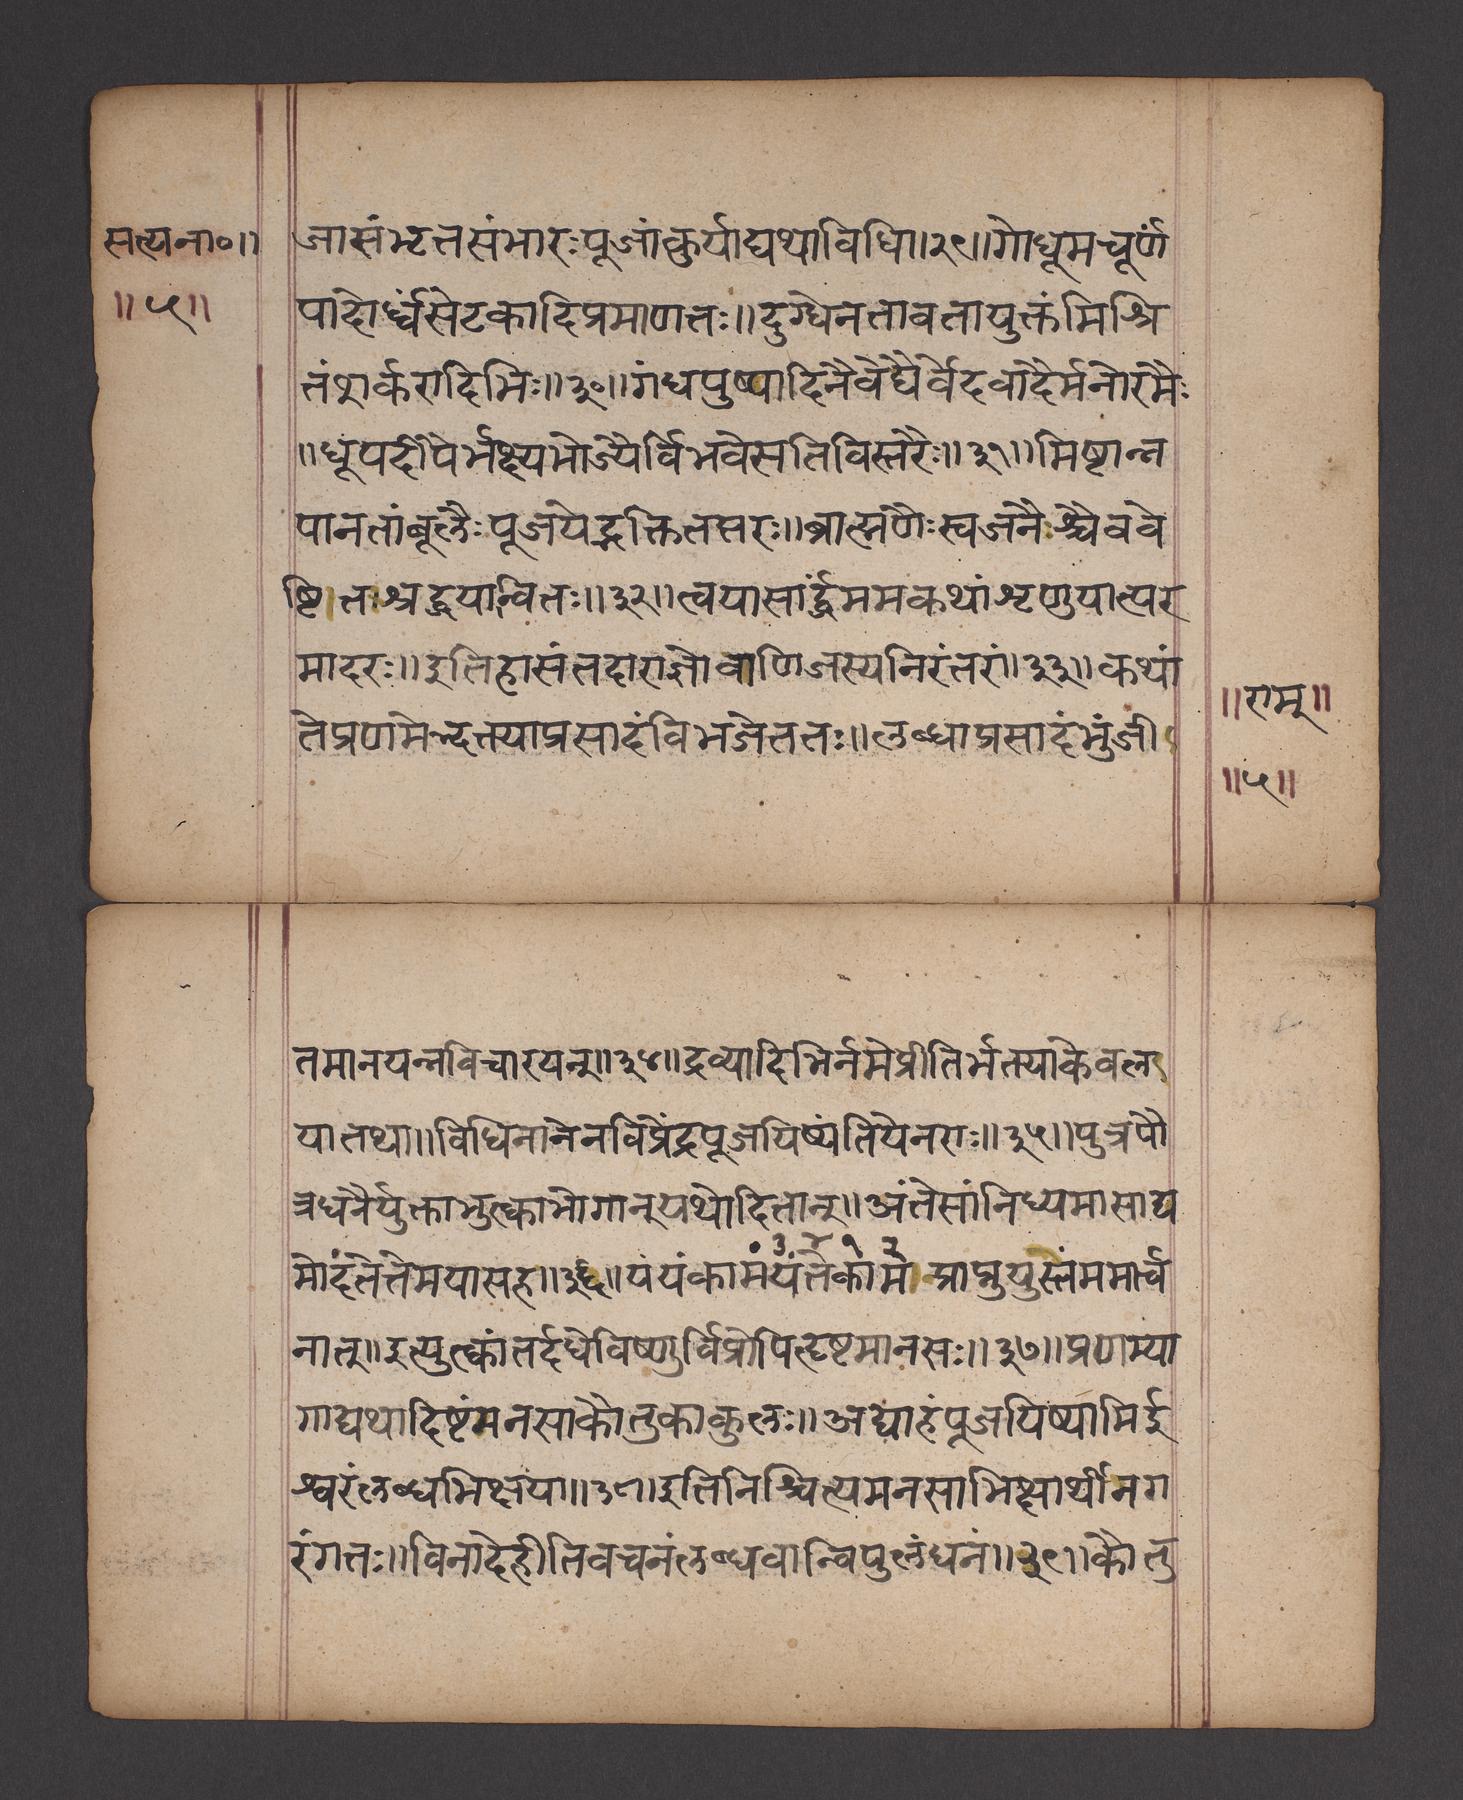 सत्यना०॥
॥५॥
जासंभृतसंभारःपूजांकुर्याद्यथाविधि॥२९॥गोधूमचूर्णं
पादोर्ध्वंसेटकादिप्रमाणतः॥दुग्धेनतावतायुक्तंमिश्रि
तंशर्करादिभिः॥३०॥गंधपुष्पादिनैवेद्यैर्वेदवादैर्मनोरमैः
॥धूपदीपैर्भक्ष्यभोज्यैर्विभवेसतिविस्तरैः॥३१॥मिष्टान्न
पानतांबूलैःपूजयेद्भक्तितत्परः॥ब्राह्मणैःस्वजनैश्चैववे
ष्टितःश्रद्धयान्वितः॥३२॥त्वयासार्द्धंममकथांशृणुयात्पर
मादरः॥इतिहासंतदाराज्ञोवाणिजस्यनिरंतरां॥३३॥कथां
तेप्रणमेद्भक्त्याप्रसादंविभजेत्ततः॥लब्धाप्रसादंभुंजी
॥रामु॥
॥५॥
तमानयन्नविचारयन्॥३४॥द्रव्यादिभिर्नमेप्रीतिर्भक्त्याकेवल
यातथा॥विधिनानेनविप्रेंद्रपूजयिष्यंतियेनराः॥३५॥पुत्रपौ
त्रधनैर्युक्ताभुत्काभोगान्यथोदितान्॥अंतेसांनिध्यमासाद्य
३ ४ १ २
मोदंतेतेमयासह॥३६॥यंयंकामंयंतेकामं प्राप्नुयुस्तेंममार्च
नात्॥इत्युत्कांतर्दधेविष्णुर्विप्रोपिहृष्टमानसः॥३७॥प्रणम्या
गाद्यथादिष्टंमनसाकौतुकाकुलः॥अद्याहंपूजयिष्यामिई
श्वरंलब्धभिक्षया॥३८॥इतिनिश्चित्यमनसाभिक्षार्थीनग
रंगतः॥विनादेहीतिवचनंलब्धवान्विपुलंधनं॥३९॥कौतु